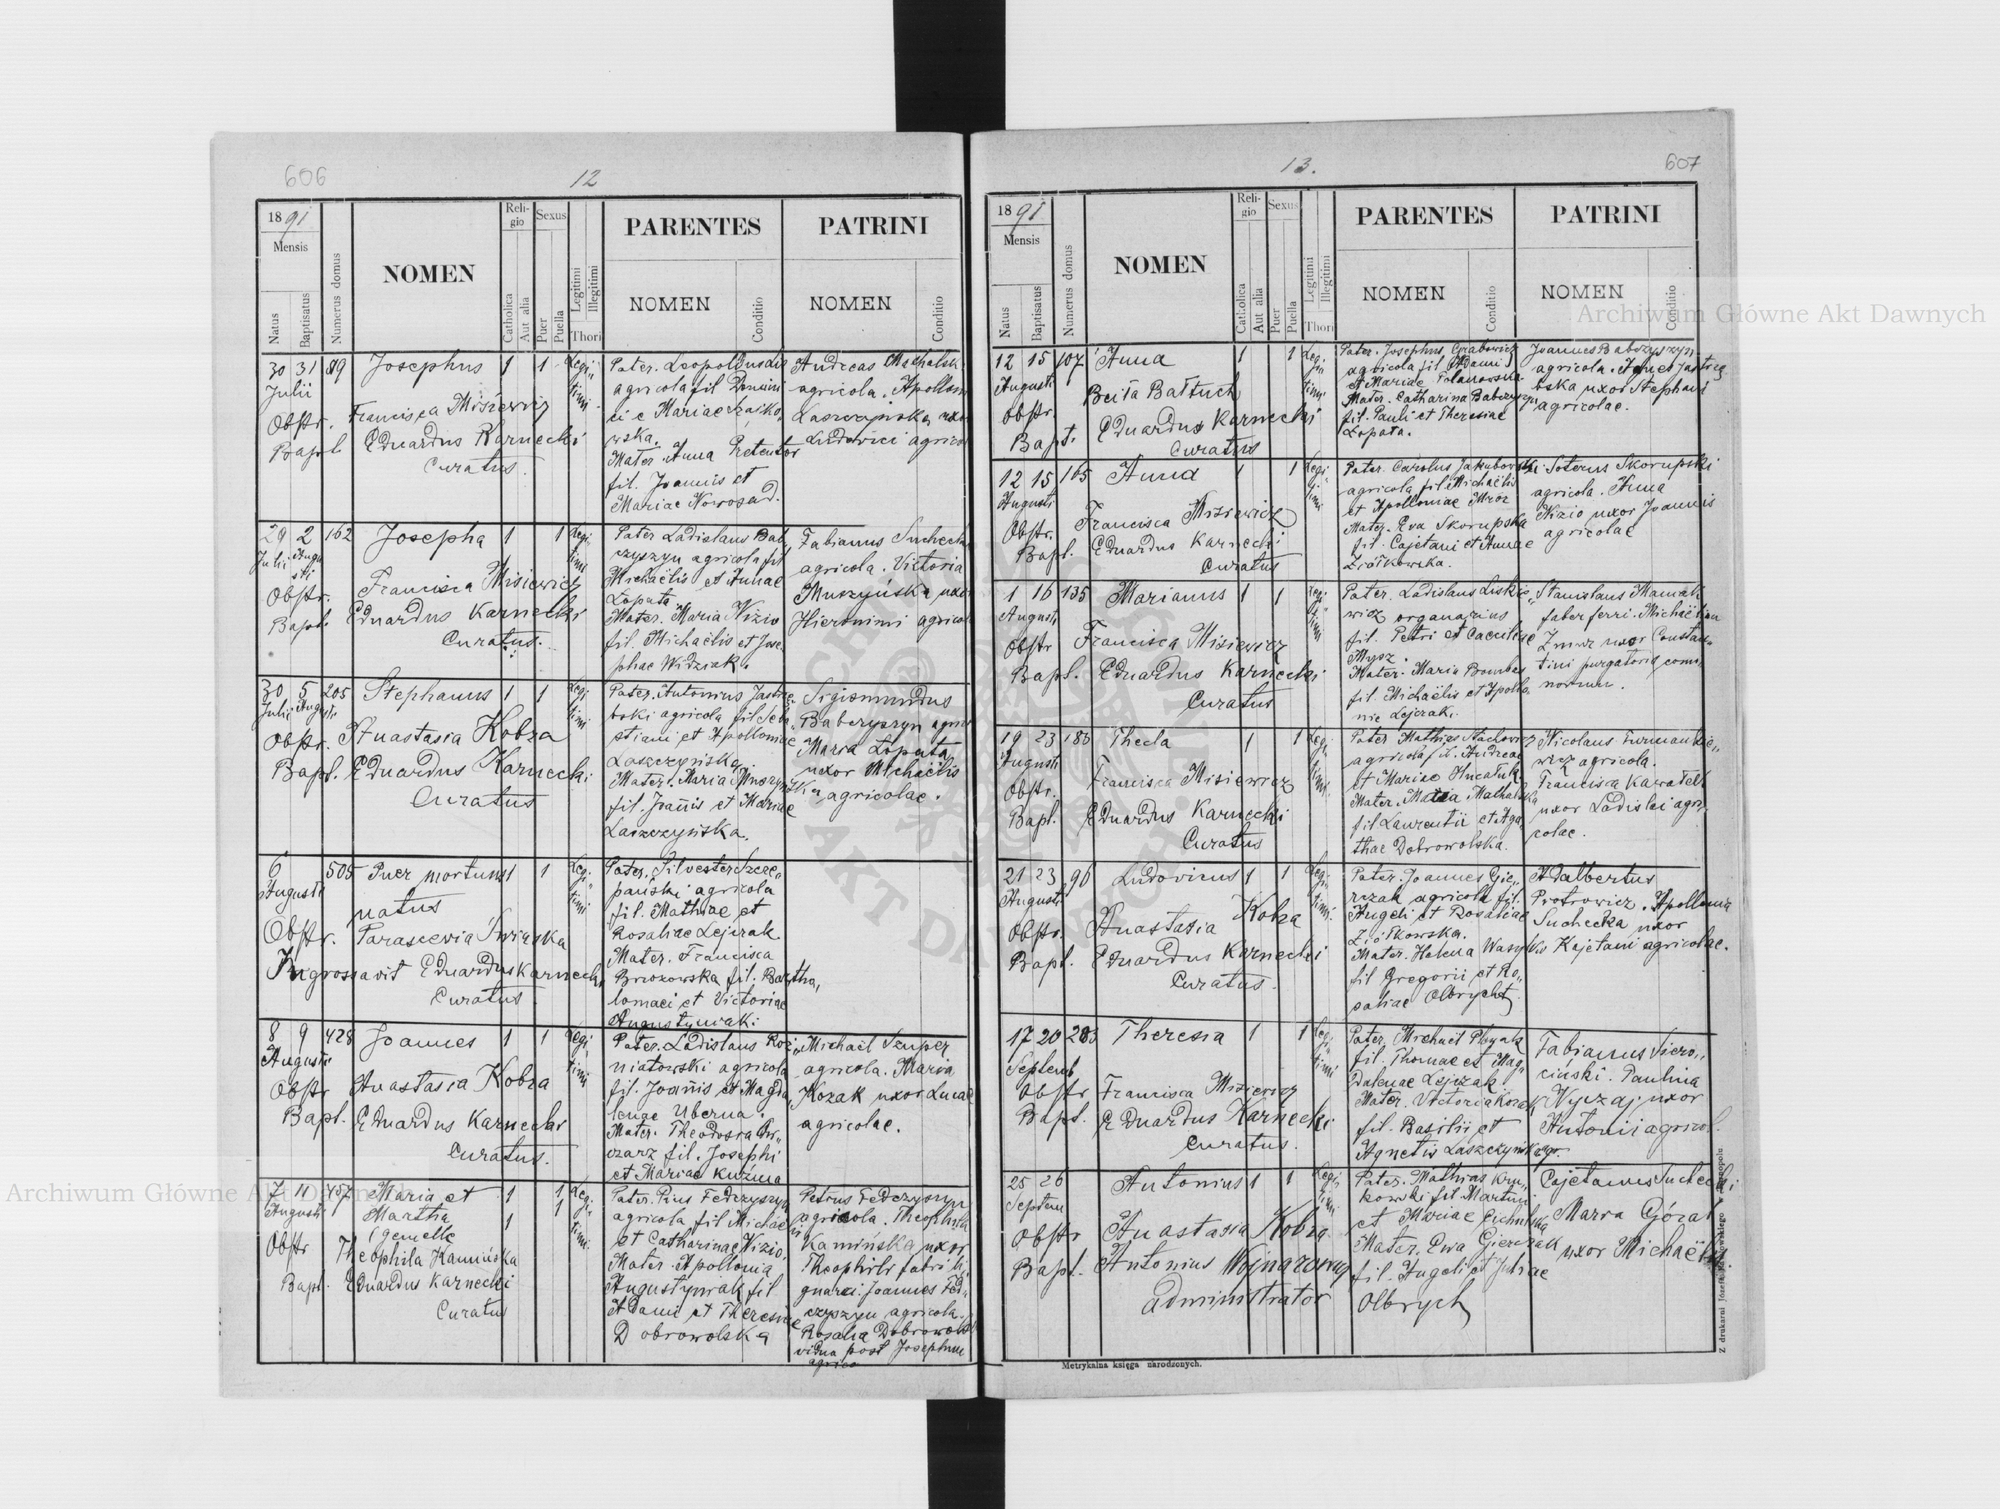 606
12
1891
Mensis
Natus
Baptisatus
Numerus domus
NOMEN
Religio
Catholica
Aut alia
Sexus
Puer
Puella
Legitimi
Illegitimi
Thori
PARENTES
NOMEN
Conditio
PATRINI
NOMEN
Conditio
30 31 89 Josephus 1 1 Legi
Julii timi
Obstr. Francisca Misiewicz
Bapt Eduardus Karnecki
Curatus.
Pater. Leopoldus
agricola fil Domini
ci e Mariae
wska.
Mater. Anna Pretentor
fil. Joannis et
Mariae Nowosad.
Andreas Machalsk
agricola. Apollon
Laszczyńska uxor
Ludovici agricol
29 2 162 Josepha 1 1 Legi
Julii Augu timi
sti
Obstr. Francisca Misiewicz
Bapt. Eduardus Karnecki
Curatus.
Pater Ladislaus Bab
czyszyn agricola fil
Michaëlis et Annae
Łopata
Mater. Maria Nizio
fil. Michaëlis et Jose
phae Widziak.
Fabianus Suchecki
agricola. Victoria
Muszyńska uxor
Hieronimi agricol
30 5 205 Stephanus 1 1 Legi
Julii Augusti timi
Obstr. Anastasia Kobza
Bapt. Eduardus Karnecki
Curatus
Pater. Antonius Jastrzę
bski agricola fil Seba
stiani et Apolloniae
Laszczyńska
Mater. Maria Muszyńska
fil. Joannis et Mariae
Laszczyńska.
Sigismundus
Babczyszyn agrico
Maria Łopata
uxor Michaëlis
agricolae.
6 505 Puer mortuus 1 1 Legi
Augusti natus timi
Obstr. Parascevia Świaska
Ingrossavit Eduardus Karnecki
Curatus.
Pater. Silvester Szcze
pański agricola
fil. Mathiae et
Rosaliae Lejczak
Mater. Francisca
Brzozowska fil. Bartho
lomaei et Victoriae
Augustyniak.
8 9 428 Joannes 1 1 Legi
Augusti timi
Obstr Anastasia Kobza
Bapt. Eduardus Karnecki
Curatus.
Pater. Ladislaus Roz
niatowski agricola
fil. Joannis et Magda
lenae Uberna.
Mater. Theodosia Ow
czarz fil. Josephi
et Mariae Kuźma
Michaël Szuper
agricola. Maria
Kozak uxor Lucae
agricolae.
7 11 457 Maria et 1 1 Leg
Augusti Martha 1 1 timi
(gemellę
Obstr Theophila Kamińska
Bapt. Eduardus Karnecki
Curatus
Pater. Pius Fedczyszyn
agricola fil Michaë
et Catharinae Nizio.
Mater. Apollonia
Augustyniak fil
Adami et Theresiae
Dobrowolska
Petrus Fedczyszyn
agricola. Theophila
Kamińska uxor
Theophili fabri li
gnarii. Joannes Fed
czyszyn agricola.
Rosalia Dobrowolsk
vidua post Josephum
agrico
13.
607
1891
Mensis
Natus
Baptisatus
Numerus domus
NOMEN
Religio
Catholica
Aut alia
Sexus
Puer
Puella
Legitimi
Illegitimi
Thori
PARENTES
NOMEN
Conditio
PATRINI
NOMEN
Conditio
12 15 107 Anna 1 1 Leg
Augusti timi
Obstr. Beiła Bałtuch
Bapt. Eduardus Karnecki
Curatus
Pater. Josephus Grabowicz
agricola fil Adami
et Mariae Polanowska
Mater. Catharina Babczyszyn
fil. Pauli et Theresiae
Łopata.
Joannes Babczyszyn
agricola. Agnet Jastrzę
bska uxor Stephani
agricolae.
12 15 165 Anna 1 1 Legi
Augusti timi
Obstr. Francisca Misiewicz
Bapt. Eduardus Karnecki
Curatus
Pater. Carolus Jakubowski
agricola fil Michaëlis
et Apolloniae Mroz
Mater. Eva Skorupska
fil. Cajetani et Annae
Ziółkowska.
Soterus Skorupski
agricola. Anna
Nizio uxor Joannis
agricolae
1 16 135 Marianus 1 1
Augusti timi
Obstr Francisca Misiewicz
Bapt. Eduardus Karnecki
Curatus
Pater. Ladislaus Liskie
wicz organarius
fil. Petri et Caeciliae
Mysz.
Mater. Maria Bombas
fil. Michaëlis et Apollo
nie Lejczak.
Stanislaus Mamcak
faber ferri. Michaëlina
uxor Constan
tini purgatoris comi
norum.
19 23 183 Thecla 1 1 Legi
Augusti timi
Obstr. Francisca Misiewicz
Bapt. Eduardus Karnecki
Curatus
Pater Mathias Stachowicz
agricola fil. Andreae
et Mariae Hucałuk
Mater. Maria Machalska
fil Laurentii et Aga
thae Dobrowolska.
Nicolaus Furmankie
wicz agricola.
Francisca Kawałek
uxor Ladislai agri
colae.
21 23 96 Ludovicus 1 1 Legi
Augusti timi
Obstr. Anastasia Kobza
Bapt. Eduardus Karnecki
Curatus.
Pater. Joannes Gie
rczak agricola fil.
Angeli et Rosaliae
Ziółkowska.
Mater. Helena Wasylkiw
fil Gregorii et Ro
saliae Olbrycht
Adalbertus
Piotrowicz. Apollonia
Suchecka uxor
Kajetani agricolae.
17 20 283 Theresia 1 1 Legi
Septemb timi
Obstr Francisca Misiewicz
Bapt. Eduardus Karnecki
Curatus.
Pater. Michaël
fil. Thomae et Mag
dalenae Lejczak
Mater. Victoria Kozak
fil. Basilii et
Agnetis Laszczyńska
Fabianus Siero
ciński. Paulina
Wyczaj uxor
Antonii agricol.
25 26 Antonius 1 1 Legi
Septem timi
Obstr Anastasia Kobza
Bapt. Antonius Wojnarowicz
administrator
Pater. Mathias Kru
kowski fil. Martini
et Mariae Cichulska
Mater. Ewa Gierczak
fil. Angeli et Juliae
Olbrych
Cajetanus Suchecki
Maria Góral
uxor Michaëlis
Metrykalna księga narodzonych.
Archiwum Główne Akt Dawnych
Archiwum Główne Akt Dawnych